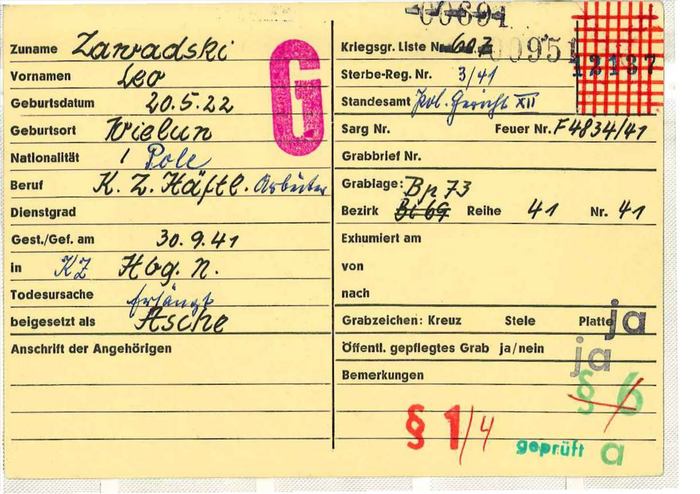 Zuname Zawadski
Vornamen Leo
Geburtsdatum 20.5.22
Geburtsort Wielun
Nationalität / Pole
Beruf K. Z. Häftl. Arbeiter
Dienstgrad
Gest./Gef. am 30.9.41
in KZ Hbg. N.
Todesursache erhängt
beigesetzt als Asche
Anschrift der Angehörigen
G
00694
Kriegsgr. Liste Nr. 607 00951
12137
Sterbe-Reg. Nr. 3/41
Standesamt Pol. Gericht XII
Sarg Nr. Feuer Nr. F4834/41
Grabbrief Nr.
Grablage: Bp 73
Bezirk Bi 69 Reihe 41 Nr. 41
Exhumiert am
von
nach
Grabzeichen: Kreuz Stele Platte ja
Öffentl. gepflegtes Grab ja/nein ja
Bemerkungen
§ 6
§ 1/4
geprüft a